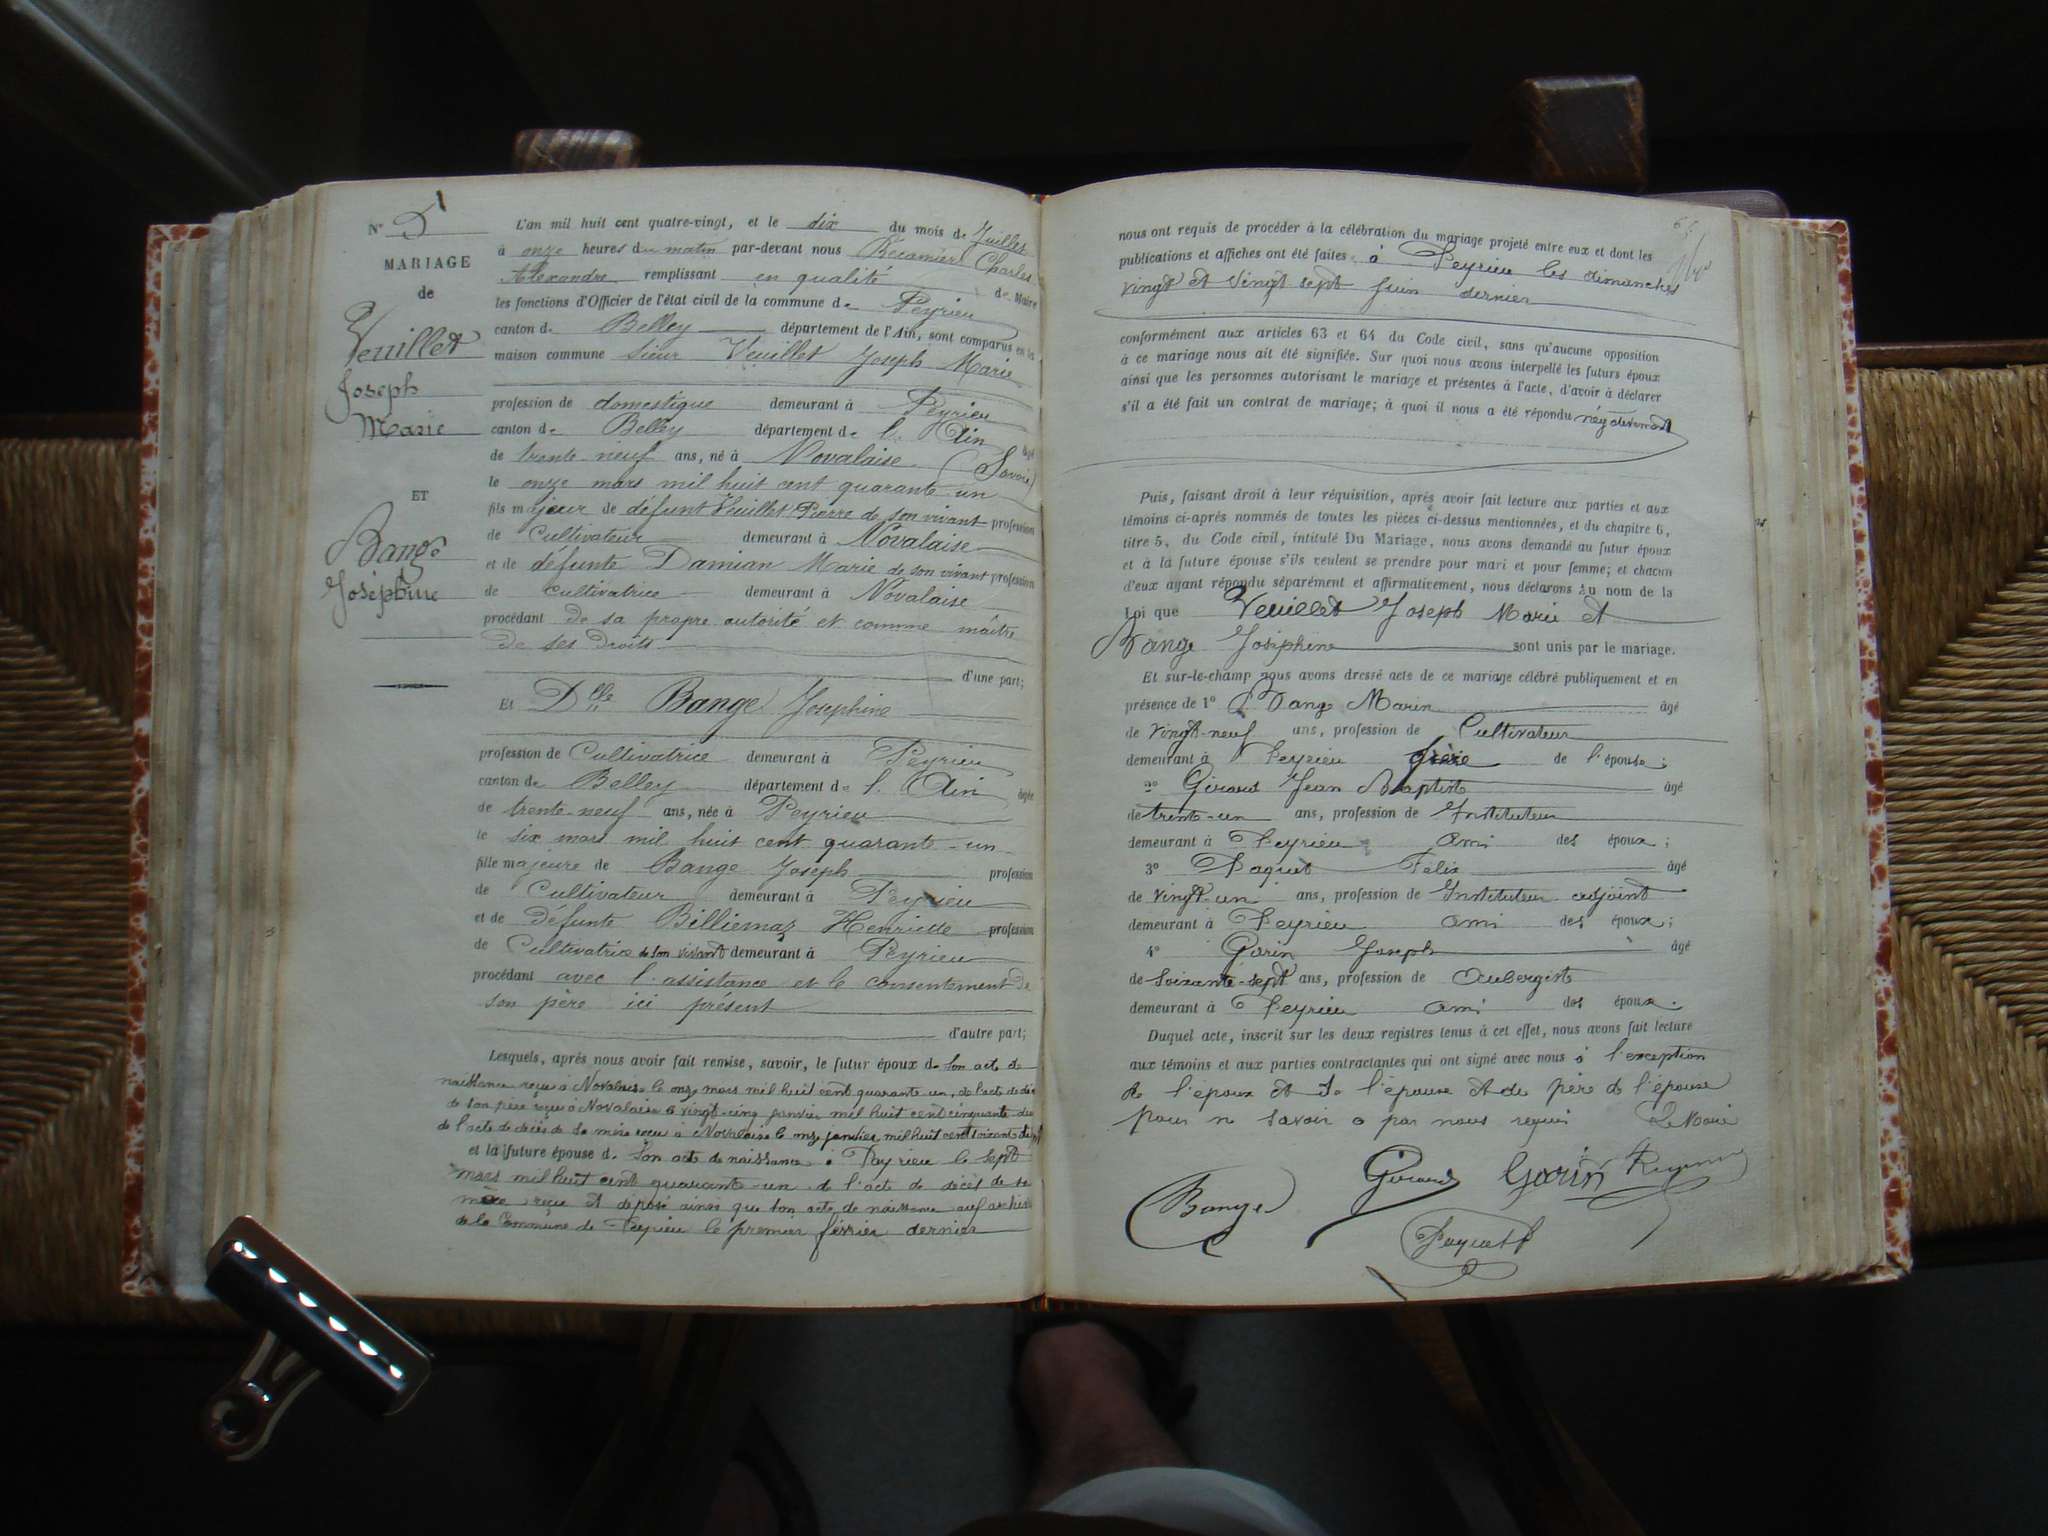 N° 5
MARIAGE
de
Veuillet
Joseph
Marie
ET
Bange
Joséphine
L'an mil huit cent quatre-vingt, et le dix du mois de Juillet
à onze heures du matin par-devant nous Récamier Charles
Alexandre remplissant en qualité de Maire
les fonctions d'Officier de l'état civil de la commune de Peyrieu
canton de Belley département de l'Ain, sont comparus en la
maison commune sieur Veuillet Joseph Marie
profession de domestique demeurant à Peyrieu
canton de Belley département de l'Ain âgé
de trente-neuf ans, né à Novalaise (Savoie)
le onze mars mil huit cent quarante-un
fils majeur de défunt Veuillet Pierre de son vivant profession
de Cultivateur demeurant à Novalaise
et de défunte Damian Marie de son vivant profession
de cultivatrice demeurant à Novalaise
procédant de sa propre autorité et comme maître
de ses droits
d'une part;
Et Dlle Bange Josephine
profession de Cultivatrice demeurant à Peyrieu
canton de Belley département de l'Ain âgée
de trente-neuf ans, née à Peyrieu
le six mars mil huit cent quarante-un
fille majeure de Bange Joseph profession
de Cultivateur demeurant à Peyrieu
et de défunte Billiemaz Henriette profession
de Cultivatrice de son vivant demeurant à Peyrieu
procédant avec l'assistance et le consentement de
son père ici présent
d'autre part;
Lesquels, après nous avoir fait remise, savoir, le futur époux de son acte de
naissance reçu à Novalaise le onze mars mil huit cent quarante un, de l'acte de décès
de son père reçu à Novalaise le vingt-cinq janvier mil huit cent cinquante
de l'acte de décès de sa mère reçu à Novalaise le onze janvier mil huit cent soixante
et la future épouse de son acte de naissance à Peyrieu le sept
mars mil huit cent quarante-un de l'acte de décès de sa
mère reçu et déposé ainsi que son acte de naissance aux archives
de la Commune de Peyrieu le premier février dernier
nous ont requis de procéder à la célébration du mariage projeté entre eux et dont les
publications et affiches ont été faites à Peyrieu les dimanches
vingt et vingt sept Juin dernier
conformément aux articles 63 et 64 du Code civil, sans qu'aucune opposition
à ce mariage nous ait été signifiée. Sur quoi nous avons interpellé les futurs époux
ainsi que les personnes autorisant le mariage et présentes à l'acte, d'avoir à déclarer
s'il a été fait un contrat de mariage; à quoi il nous a été répondu négativement
Puis, faisant droit à leur réquisition, après avoir fait lecture aux parties et aux
témoins ci-après nommés de toutes les pièces ci-dessus mentionnées, et du chapitre 6,
titre 5, du Code civil, intitulé Du Mariage, nous avons demandé au futur époux
et à la future épouse s'ils veulent se prendre pour mari et pour femme; et chacun
d'eux ayant répondu séparément et affirmativement, nous déclarons au nom de la
Loi que Veuillet Joseph Marie et
Bange Joséphine sont unis par le mariage.
Et sur-le-champ nous avons dressé acte de ce mariage célébré publiquement et en
présence de 1° Bange Marin âgé
de vingt-neuf ans, profession de Cultivateur
demeurant à Peyrieu frère de l'épouse;
2° Giraud Jean Baptiste âgé
de trente-un ans, profession de Instituteur
demeurant à Peyrieu ami des époux;
3° Paquet Félix âgé
de vingt-un ans, profession de Instituteur adjoint
demeurant à Peyrieu ami des époux;
4° Gorin Joseph âgé
de soixante-sept ans, profession de Aubergiste
demeurant à Peyrieu ami des époux.
Duquel acte, inscrit sur les deux registres tenus à cet effet, nous avons fait lecture
aux témoins et aux parties contractantes qui ont signé avec nous à l'exception
de l'époux et de l'épouse et du père de l'épouse
pour ne savoir a par nous requis Le Maire
Bange Giraud Gorin
Paquet f